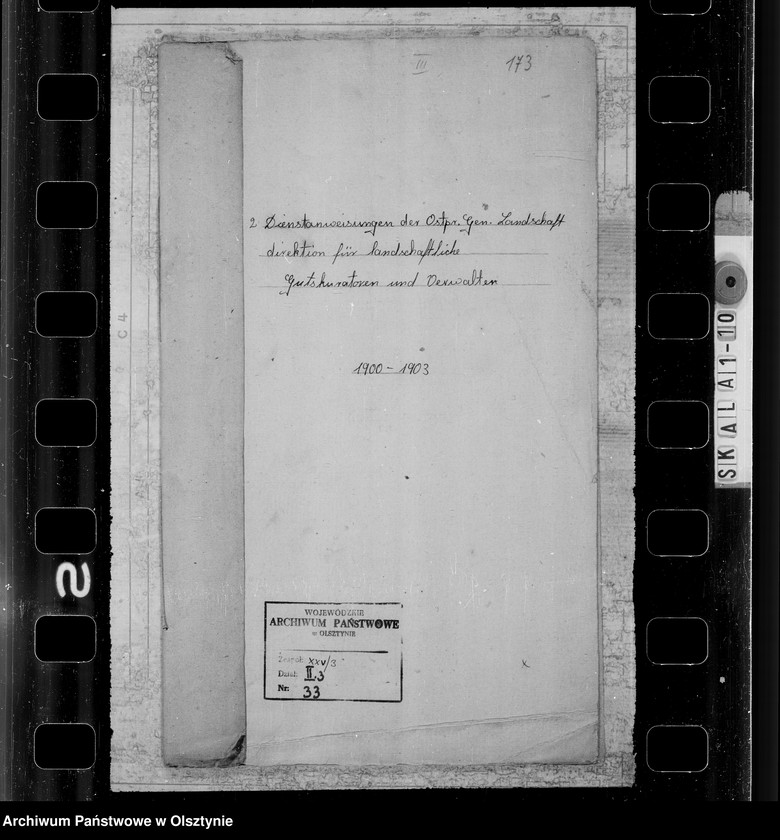 III
173
2 Dienstanweisungen der Ostpr. Gen. Landschaft
direktion für landschaftliche
Gutskuratoren und Verwalten
1900 - 1903
C 4
SKALA 1-10
2
WOJEWÓDZKIE
ARCHIWUM PAŃSTWOWE
w OLSZTYNIE
Zespół: XXV/3
Dział: II.3
Nr: 33
x
Archiwum Państwowe w Olsztynie